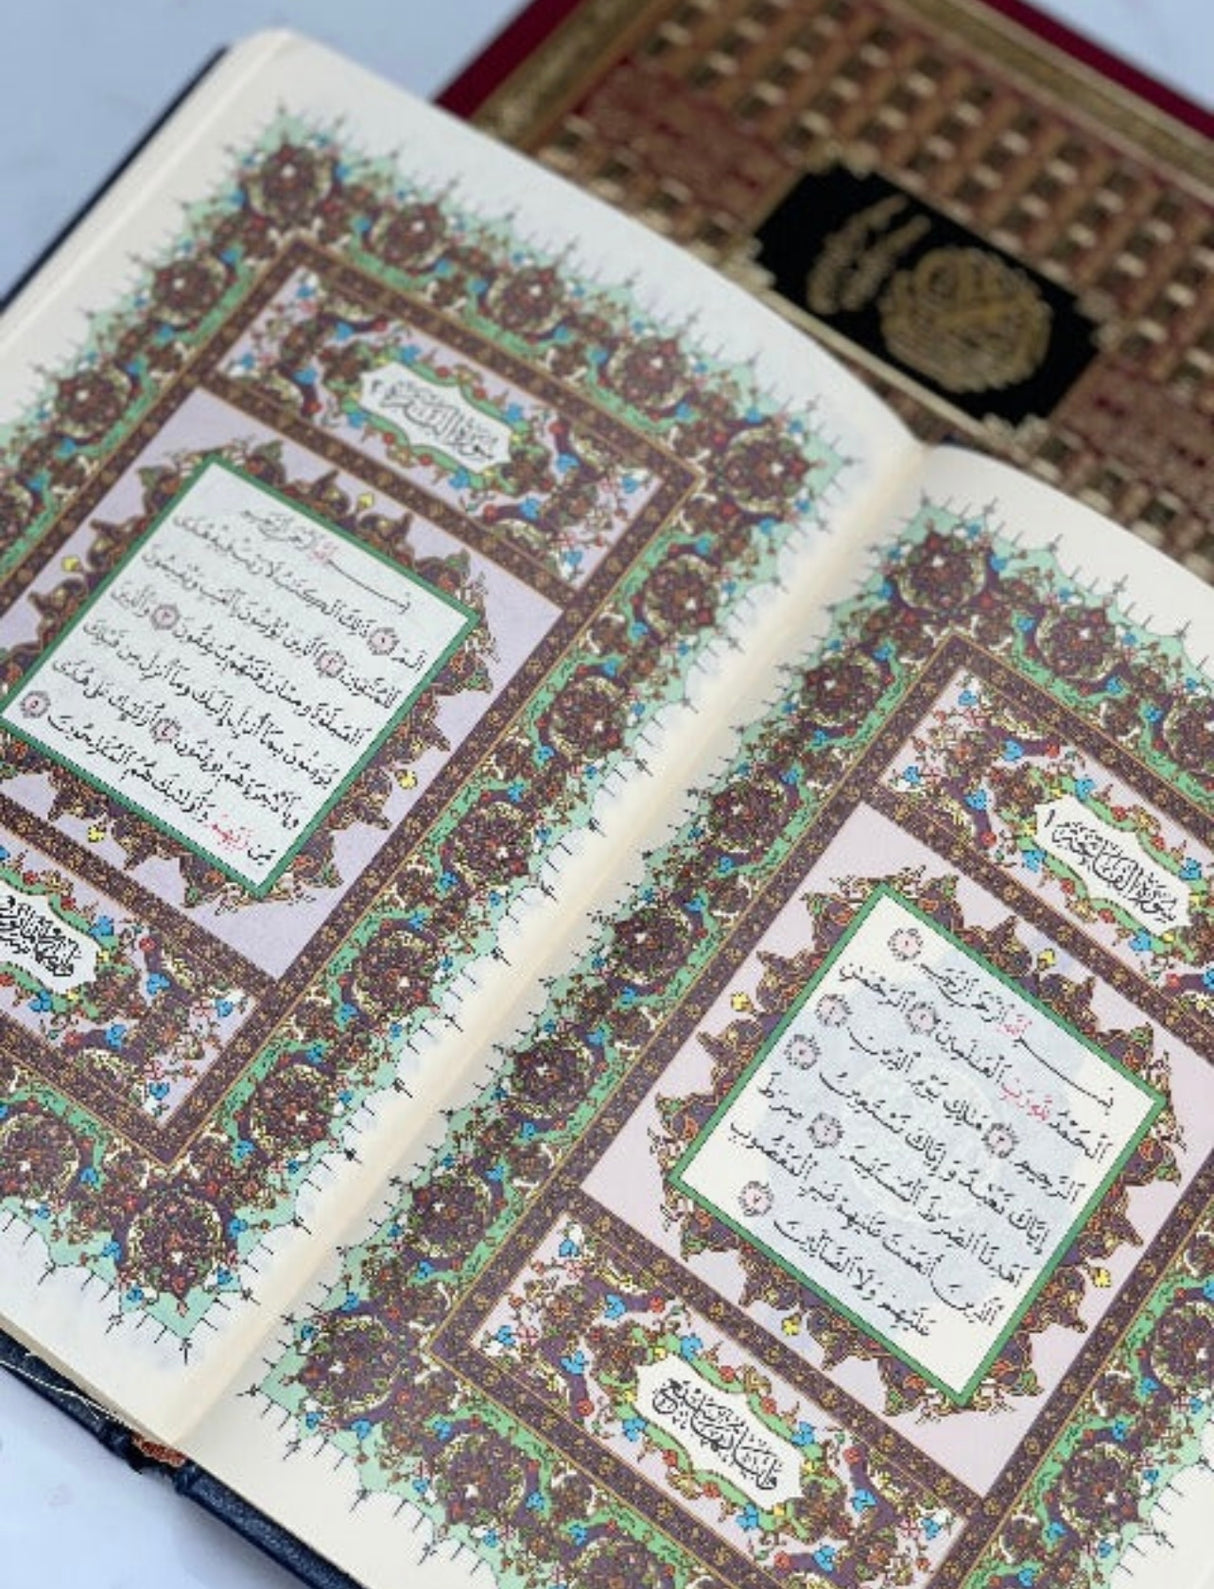 سورة الفاتحة ١
بسم الله الرحمن الرحيم ١
الحمد لله رب العلمين ٢ الرحمن
الرحيم ٣ ملك يوم الدين ٤
إياك نعبد وإياك نستعين ٥
اهدنا الصرط المستقيم ٦ صرط
الذين أنعمت عليهم غير المغضوب
عليهم ولا الضالين ٧
سورة البقرة ٢
بسم الله الرحمن الرحيم
الم ١ ذلك الكتب لا ريب فيه هدى
للمتقين ٢ الذين يؤمنون بالغيب ويقيمون
الصلوة ومما رزقنهم ينفقون ٣ والذين
يؤمنون بما أنزل إليك وما أنزل من قبلك
وبالآخرة هم يوقنون ٤ أولئك على هدى
من ربهم وأولئك هم المفلحون ٥